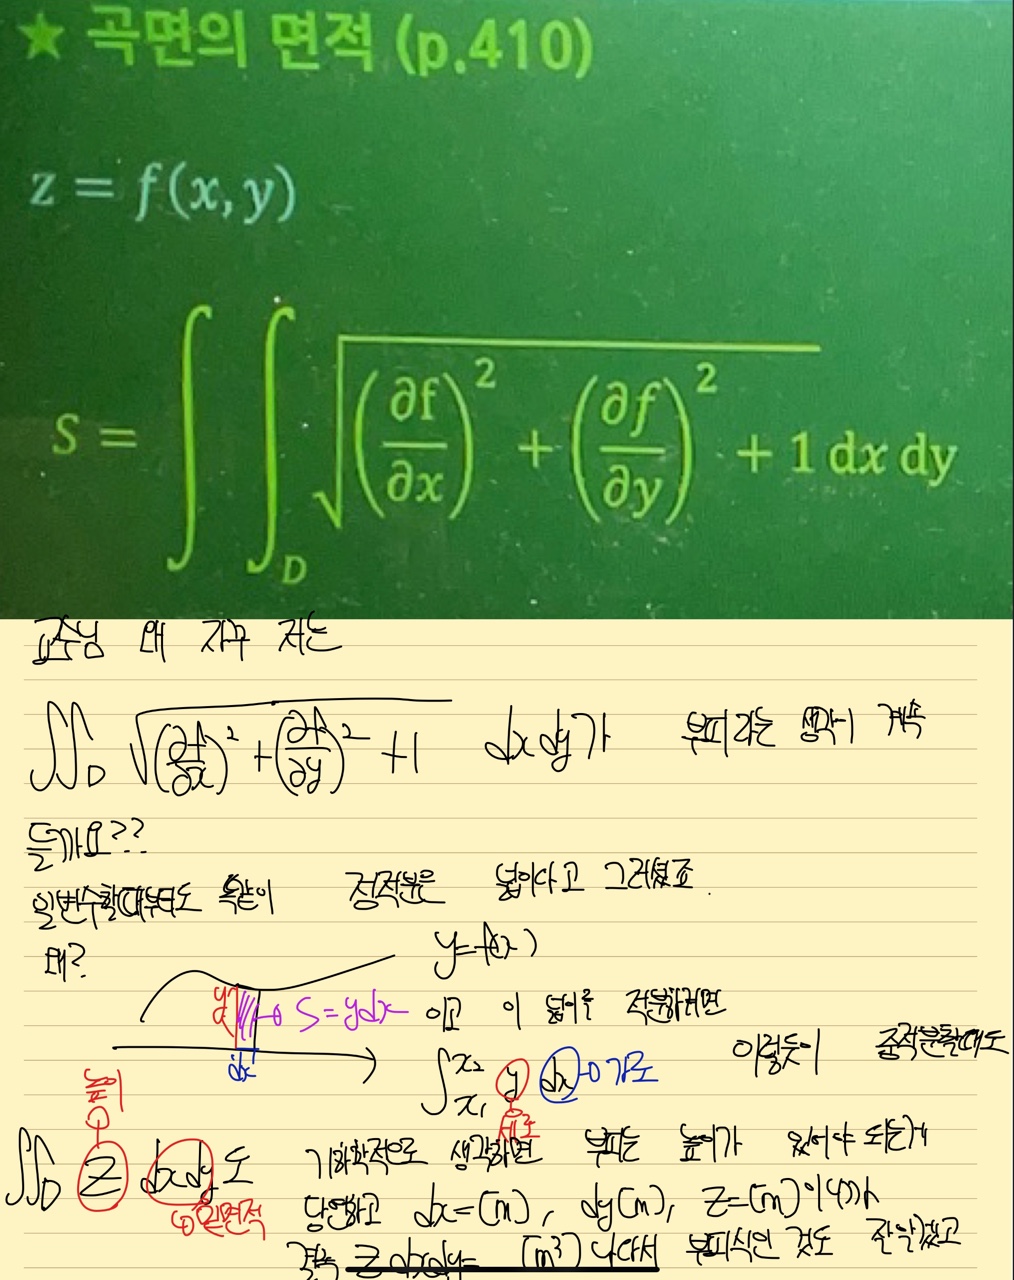 ★ 곡면의 면적 (p.410)
z = f(x, y)
S = ∫∫_D √((∂f/∂x)² + (∂f/∂y)² + 1) dx dy
교수님 왜 자꾸 저는
∬_D √((∂f/∂x)² + (∂f/∂y)² + 1) dx dy가 부피라는 생각이 계속
들까요??
일변수할때부터도 똑같이 정적분은 넓이다고 그러셨죠.
왜?
y=f(x)
y S=ydx 이고 이 넓이를 적분하려면
dx
∫_{x₁}^{x₂} y dx → 가로 이렇듯이 중적분할때도
세로
높이
∬_D z dxdy도 기하학적으로 생각하면 부피는 높이가 있어야 되는게
밑면적
당연하고 dx=[m], dy[m], z=[m]이니까
결국 z dxdy= [m³] 나와서 부피식인 것도 잘 알겠고